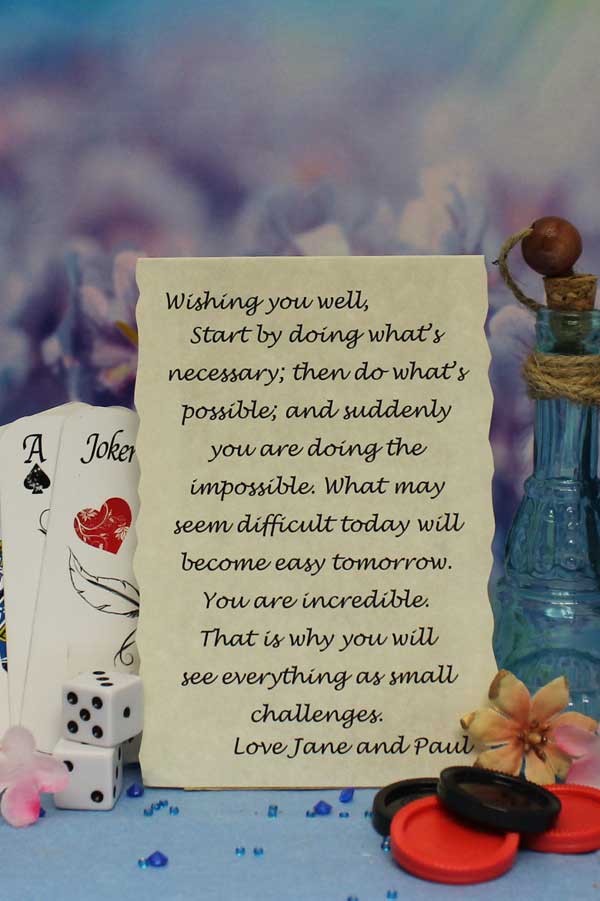 Wishing you well,
Start by doing what's
necessary; then do what's
possible; and suddenly
you are doing the
impossible. What may
seem difficult today will
become easy tomorrow.
You are incredible.
That is why you will
see everything as small
challenges.
Love Jane and Paul
A
Joker